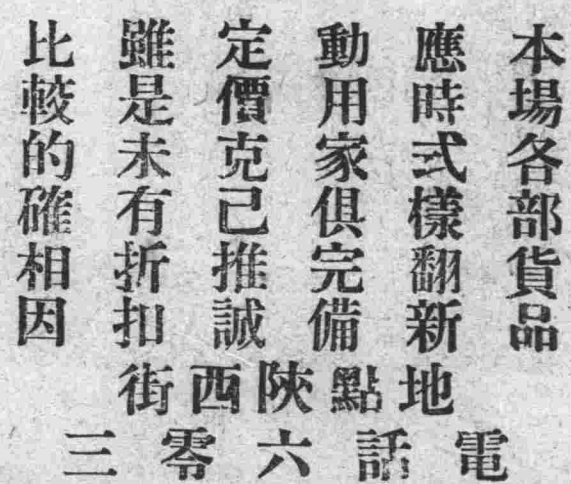 本場各部貨品
應時式樣翻新
動用家俱完備
定價克己推誠
雖是未有折扣
比較的確相因
地點陝西街
電話六零三